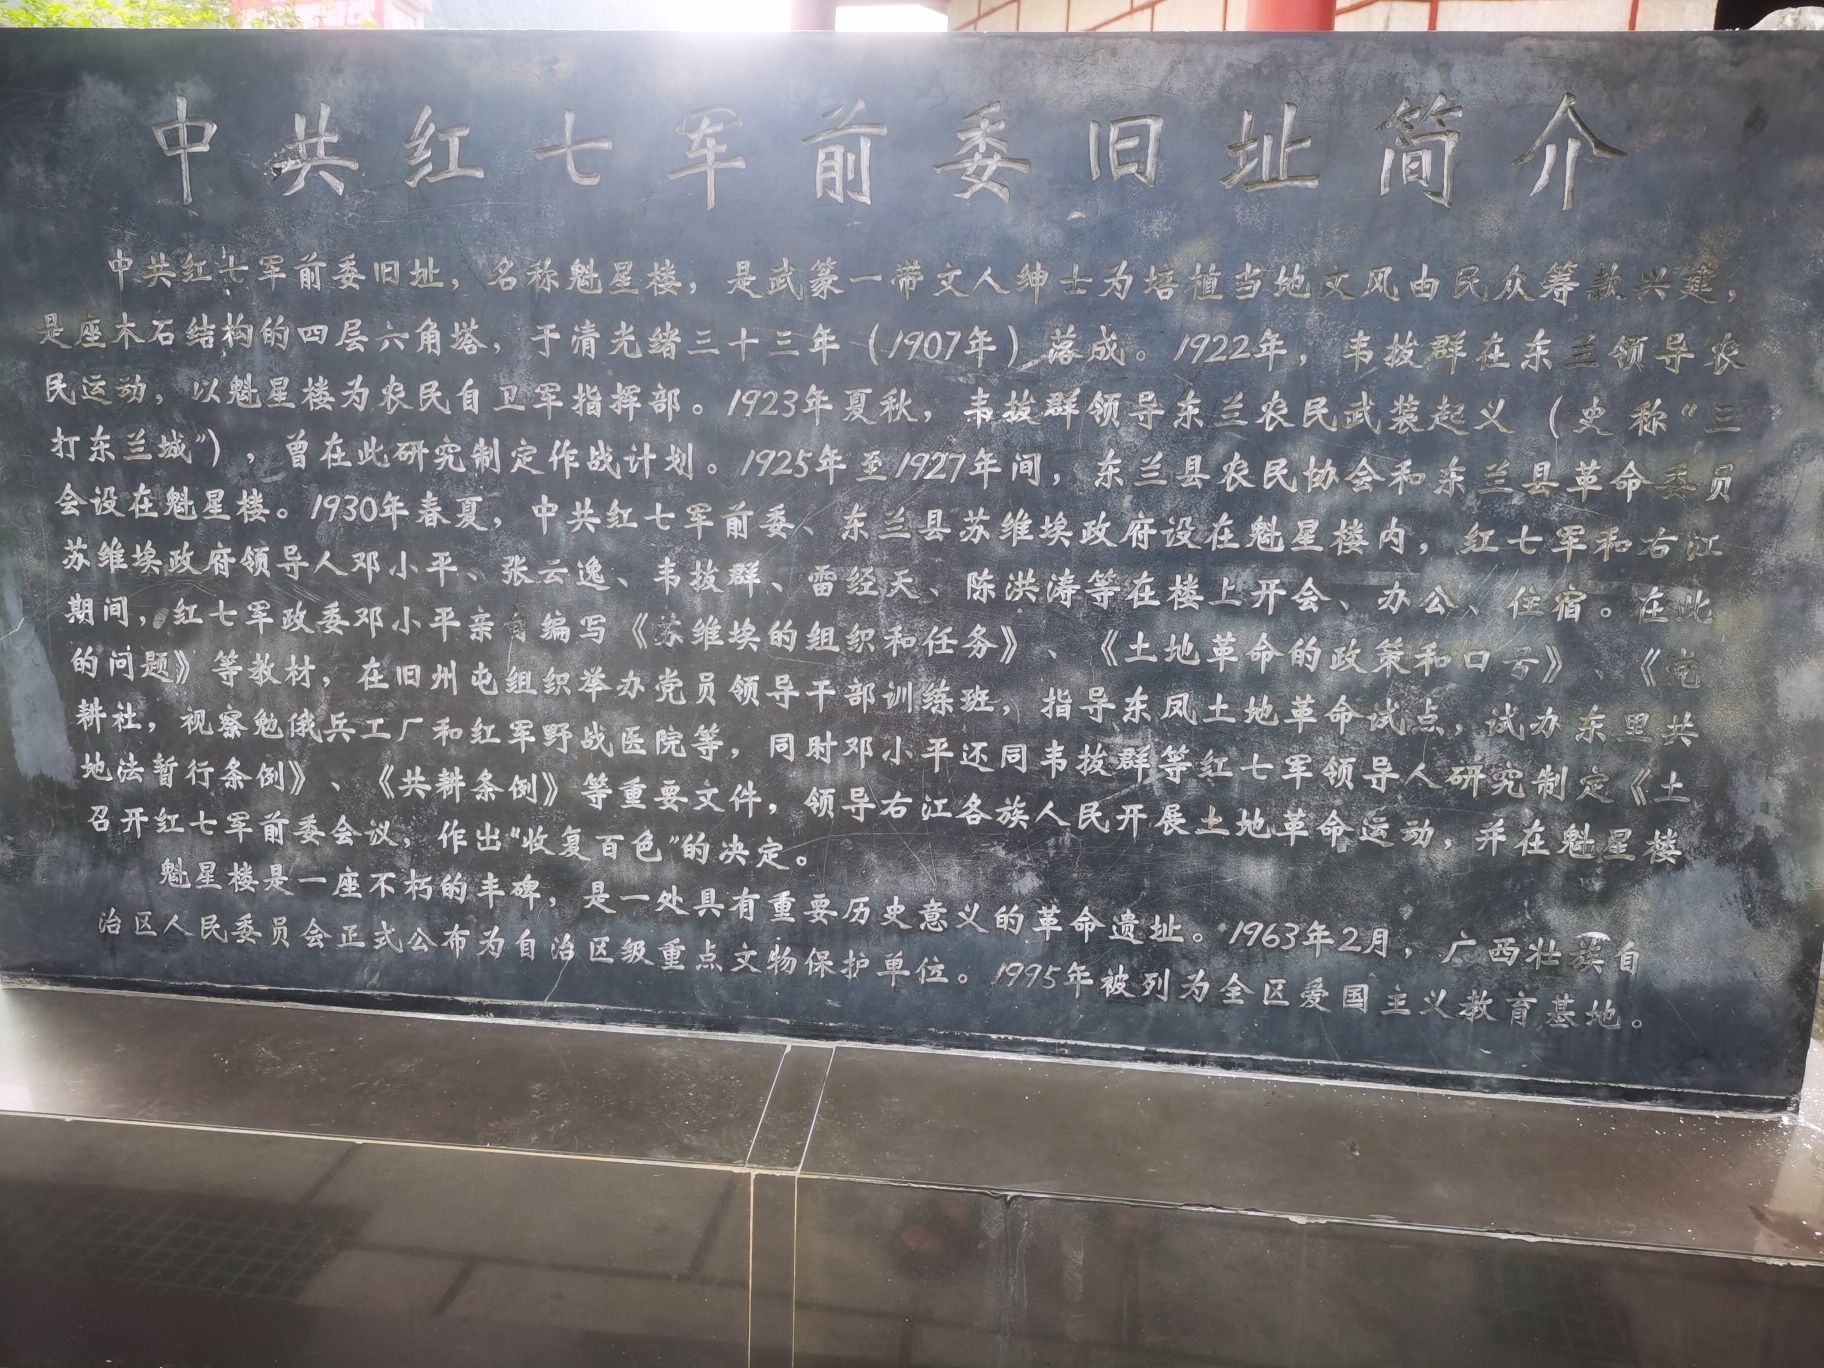 中共红七军前委旧址简介
中共红七军前委旧址，名称魁星楼，是武篆一带文人绅士为培植当地文风由民众筹款兴建，
是座木石结构的四层六角塔，于清光绪三十三年（1907年）落成。1922年，韦拔群在东兰领导农
民运动，以魁星楼为农民自卫军指挥部。1923年夏秋，韦拔群领导东兰农民武装起义（史称“三
打东兰城”），曾在此研究制定作战计划。1925年至1927年间，东兰县农民协会和东兰县革命委员
会设在魁星楼。1930年春夏，中共红七军前委、东兰县苏维埃政府设在魁星楼内，红七军和右江
苏维埃政府领导人邓小平、张云逸、韦拔群、雷经天、陈洪涛等在楼上开会、办公、住宿。在此
期间，红七军政委邓小平亲自编写《苏维埃的组织和任务》、《土地革命的政策和口号》、《党
的问题》等教材，在旧州屯组织举办党员领导干部训练班，指导东凤土地革命试点，试办东里共
耕社，视察勉俄兵工厂和红军野战医院等，同时邓小平还同韦拔群等红七军领导人研究制定《土
地法暂行条例》、《共耕条例》等重要文件，领导右江各族人民开展土地革命运动，并在魁星楼
召开红七军前委会议，作出“收复百色”的决定。
魁星楼是一座不朽的丰碑，是一处具有重要历史意义的革命遗址。1963年2月，广西壮族自
治区人民委员会正式公布为自治区级重点文物保护单位。1995年被列为全区爱国主义教育基地。